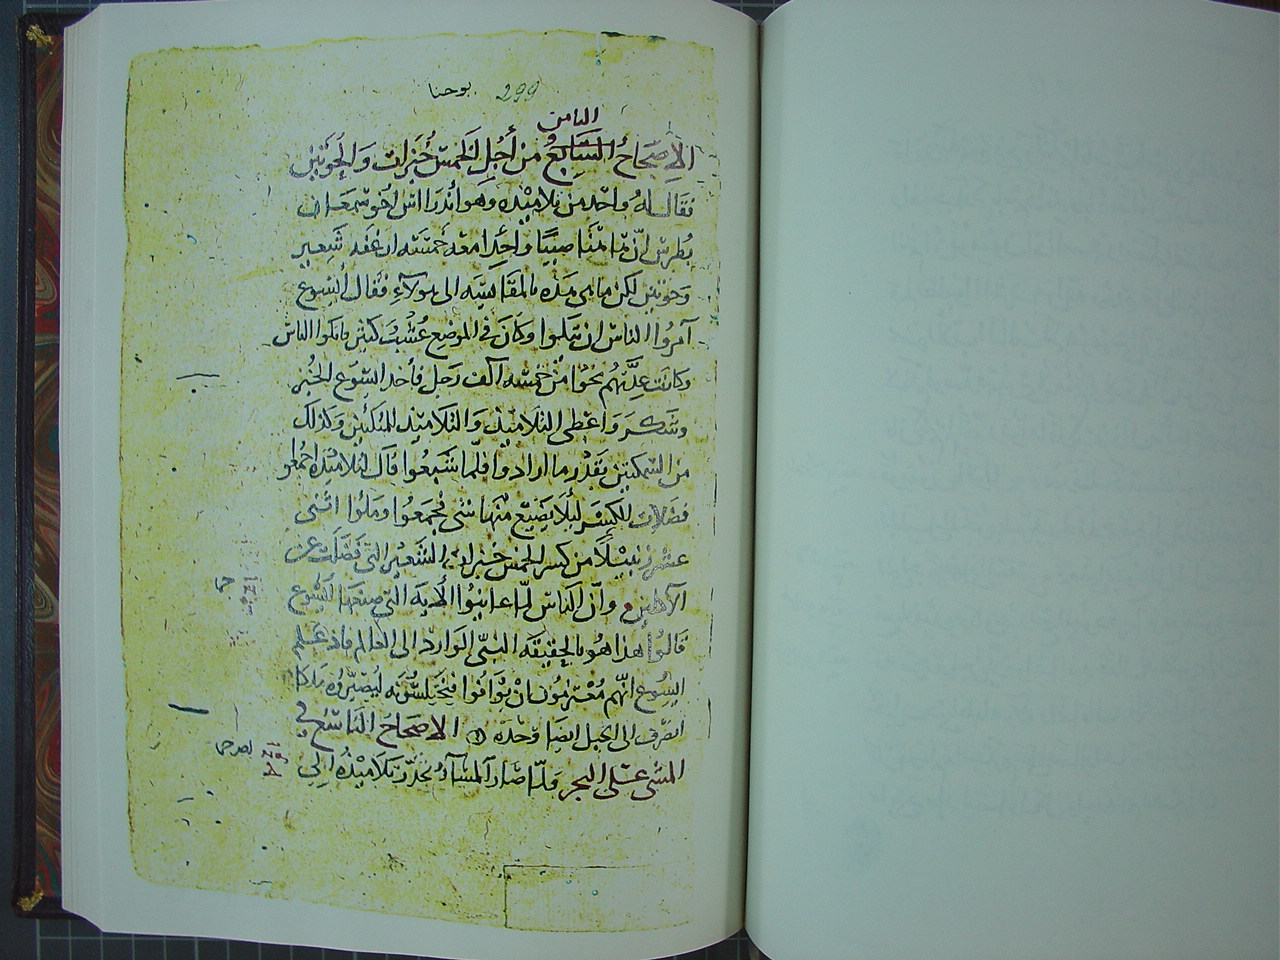 يوحنا 299
الثامن
الإصحاحُ السَّابعُ من أجلِ الخمس خُبزات وَالحُوتَين
فقال لهُ واحد من تلاميْده وهو أندرااس أخو سمعان
بُطرس إنّ هاهُنَا صبيًا وَاحِدًا معه خمسَة ارغفه شَعِير
وَحُوتين لكن ما هي هذه بالمقاسيه الى هولآءِ فقال أيسُوع
آمرُوا الناس ان يتكوا وكانَ في الموضع عُشْبٌ كثير فاتكوا الناس
وكانت عِدَّتهُم نحوًا مِن خمْسه آلف رَجل فأخد ايسُوع الخُبز
وشكرَ وَاعْطى التلاميد وَالتلاميد للمُتكئين وَكذلك
من السَّمكتين بقدْر ما ارادوا فلمّا شَبعُوا قال لتلاميْده اجمعُو
فضلات الكِسَر ليُلا يَضِيع منها شى فجمَعُوا وملُوا اثنى
عشر زنبيْلاً من كسر الخمس خبزات الشعير التى فَضَلت عن
الآكلين وانّ الناس لمّا عاينُوا الأيه التى صنعَهَا ايسُوع
قَالوُا هذا هُو بالحقِيقَه النبّى الوَارد الى العالم فاذ عَلم
ايسُوع انّهم مُعْتزمُون انْ يُوَافُوا فيَختلسُونَه ليُصَيِّروُه مَلكًا
انصَرف الى الجبل ايضًا وَحْدَه الاصحَاحُ التَاسْعُ في
المشى عَلى البحر وَلمّا صَارَ المسَآءُ نحدَّرَ تلاميْدُه إلى